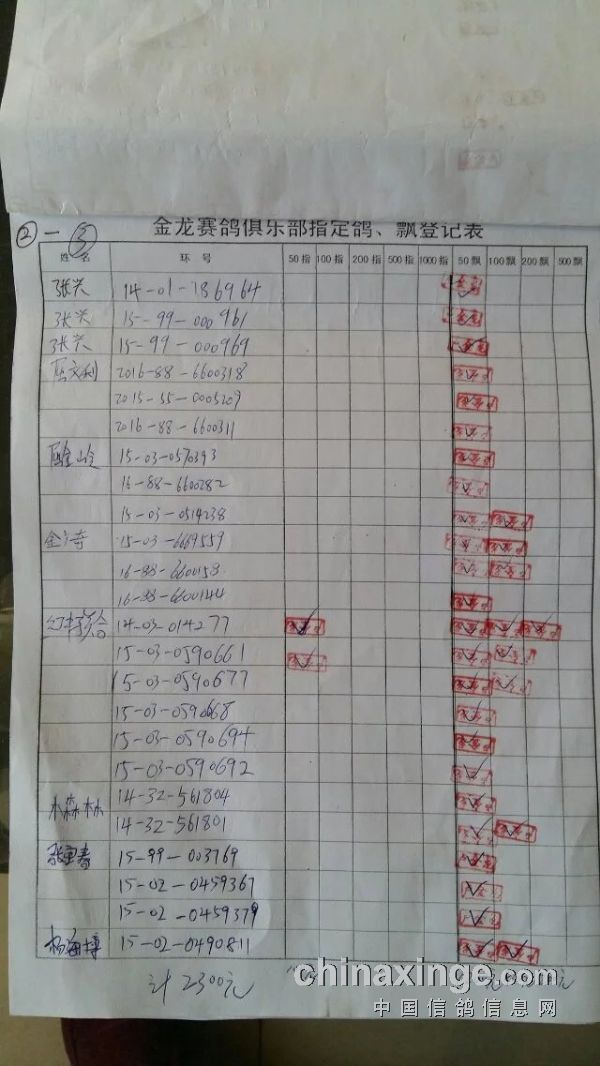 ② 一 ③
金龙赛鸽俱乐部指定鸽、飘登记表
姓名 环号 50指 100指 200指 500指 1000指 50飘 100飘 200飘 500飘
张兴 14-01-186964
张兴 15-99-000961
张兴 15-99-000969
2016-88-6600318
2015-35-0005209
2016-88-6600311
15-03-0570393
16-88-6600282
15-03-0514238
15-03-6669559
16-88-6600153
16-88-6600144
14-03-014277
15-03-0590661
15-03-0590677
15-03-0590668
15-03-0590694
15-03-0590692
木森林 14-32-561804
14-32-561801
15-99-003769
15-02-0459367
15-02-0459379
杨海博 15-02-0490811
计2300元
chinaxinge.com
中国信鸽信息网